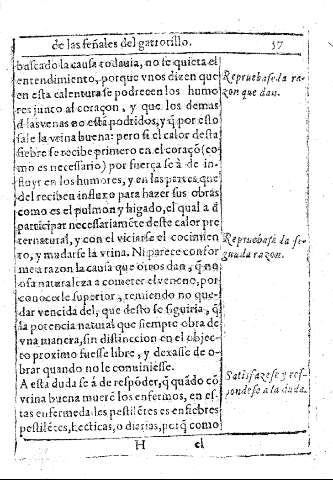 de las señales del garrotillo. 57
buscado la causa todauia, no se quieta el
entendimiento, porque vnos dizen que
en esta calentura se podrecen los humo
res junto al coraçon, y que los demas
d̃ las venas no está podridos, y q̃ por esto
sale la veina buena: pero si el calor desta
fiebre se recibe primero en el coraçõ (co
mo es necessario) por fuerça se à de in
fluyr en los humores, y en las partes que
del reciben influxo para hazer sus obras
como es el pulmon y higado, el qual a d̃
participar necessariamẽte deste calor pre
ternatural, y con el viciarse el cocimien
to, y mudarse la vrina. Ni parece confor
me a razon la causa que otros dan, q̃ no
osa naturaleza a cometer el veneno, por
conocerle superior, temiendo no que-
dar vencida del, que desto se siguiria, q̃
la potencia natural que siempre obra de
vna manera, sin distinccion en el objec-
to proximo fuesse libre, y dexasse de o-
brar quando no le conuiniesse.
A esta duda se á de respõder, q̃ quãdo cõ
vrina buena muerẽ los enfermos, en es-
tas enfermedades pestilẽtes es en fiebres
pestilẽtes, hecticas, o diarias, porq̃ como
H el
Repruebase da ra
zon que dan.
Repruebase da se-
gunda razon.
Satisfazese y res-
pondese a la duda.